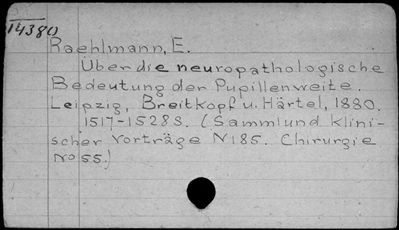 14380
Raehlmann, E.
Über die neuropathologische
Bedeutung der Pupillenweite.
Leipzig, Breitkopf u. Härtel, 1880.
1517-1528 S. (Sammlund klini-
scher Vorträge N185. Chirurgie
No 55.)